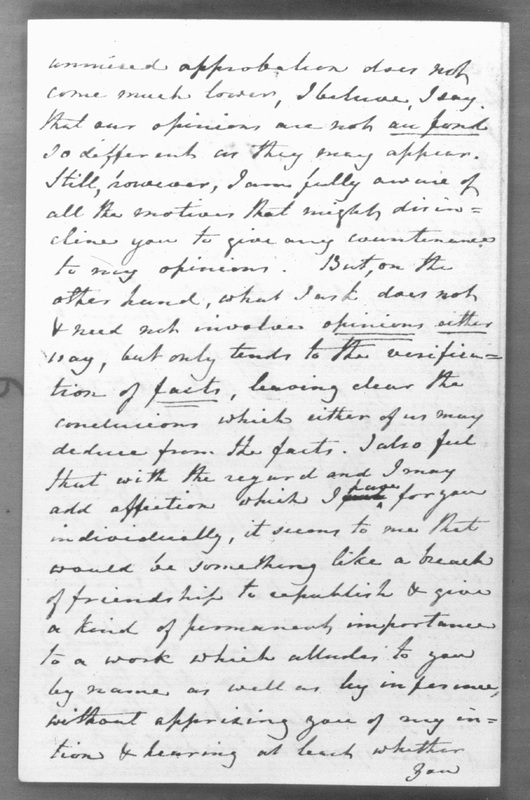 unmixed approbation does not
come much lower, I believe, I say
that our opinions are not au fond
so different as they may appear.
Still, however, I am fully aware of
all the motives that might disin=
cline you to give any countenance
to my opinions. But, on the
other hand, what I ask does not
& need not involve opinions either
way, but only tends to the verifica=
tion of facts, leaving clear the
conclusions which either of us may
deduce from the facts. I also feel
that with the regard and I may
add affection which I have for you
individually, it seems to me that
would be something like a breach
of friendship to republish & give
a kind of permanent importance
to a work which alludes to you
by name as well as by inference,
without apprizing you of my in=
tion & hearing at least whether
you